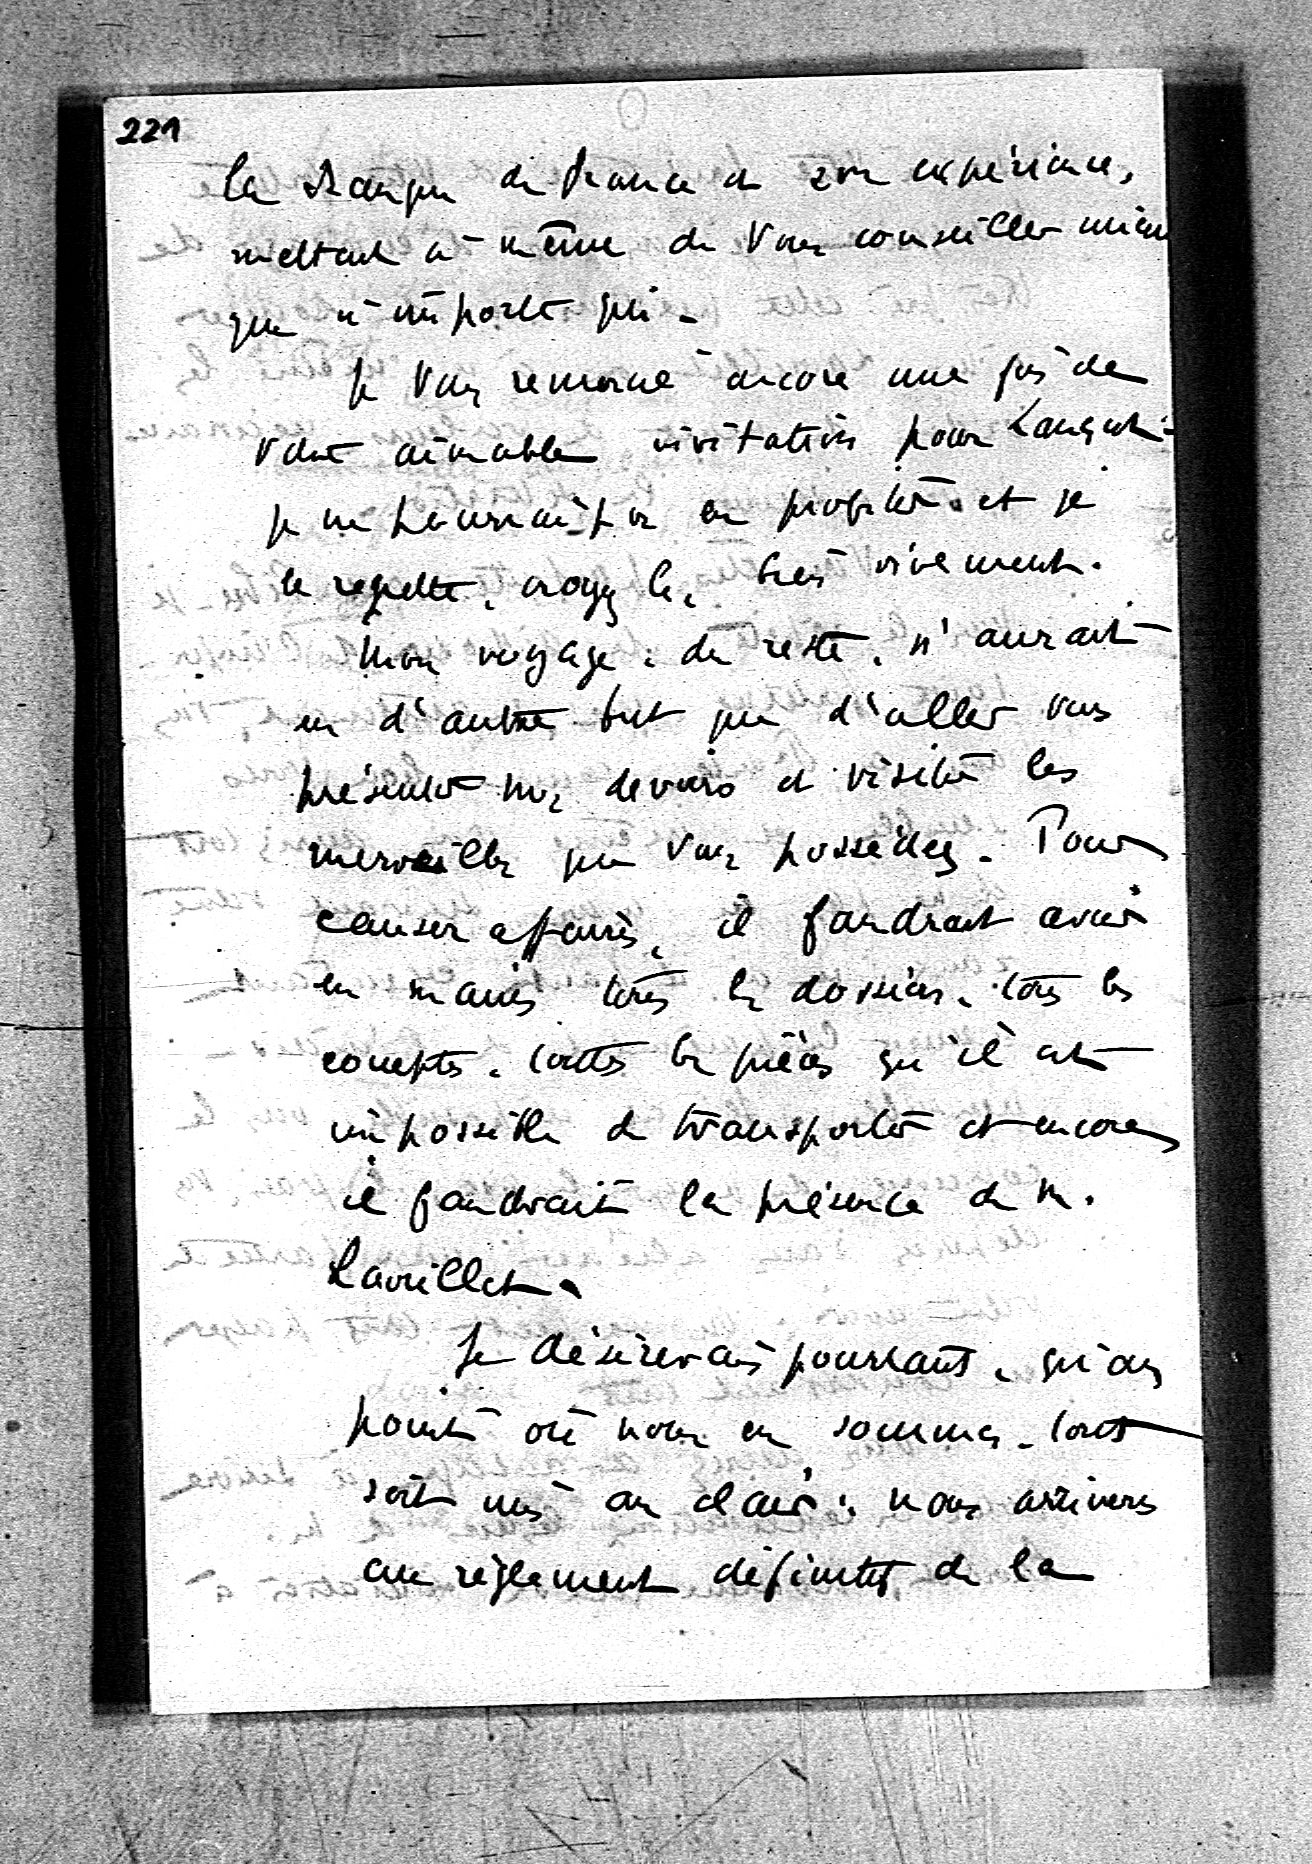 221
la Banque de France et son expérience,
mettant à même de vous conseiller mieux
que n'importe qui.
Je vous remercie encore une fois de
votre aimable invitation pour
je ne pourrai pas en profiter et je
le regrette, croyez le, très vivement.
Mon voyage, du reste, n'aurait
eu d'autre but que d'aller vous
présenter mes devoirs et visiter les
merveilles que vous possédez. Pour
causer affaires, il faudrait avoir
en mains tous les dossiers, tous les
comptes, toutes les pièces qu'il est
impossible de transporter et encore
il faudrait la présence de M.
Lavrillet.
Je désirerais pourtant, qu'au
point où nous en sommes, tout
soit mis au clair : nous arrivons
au règlement définitif de la